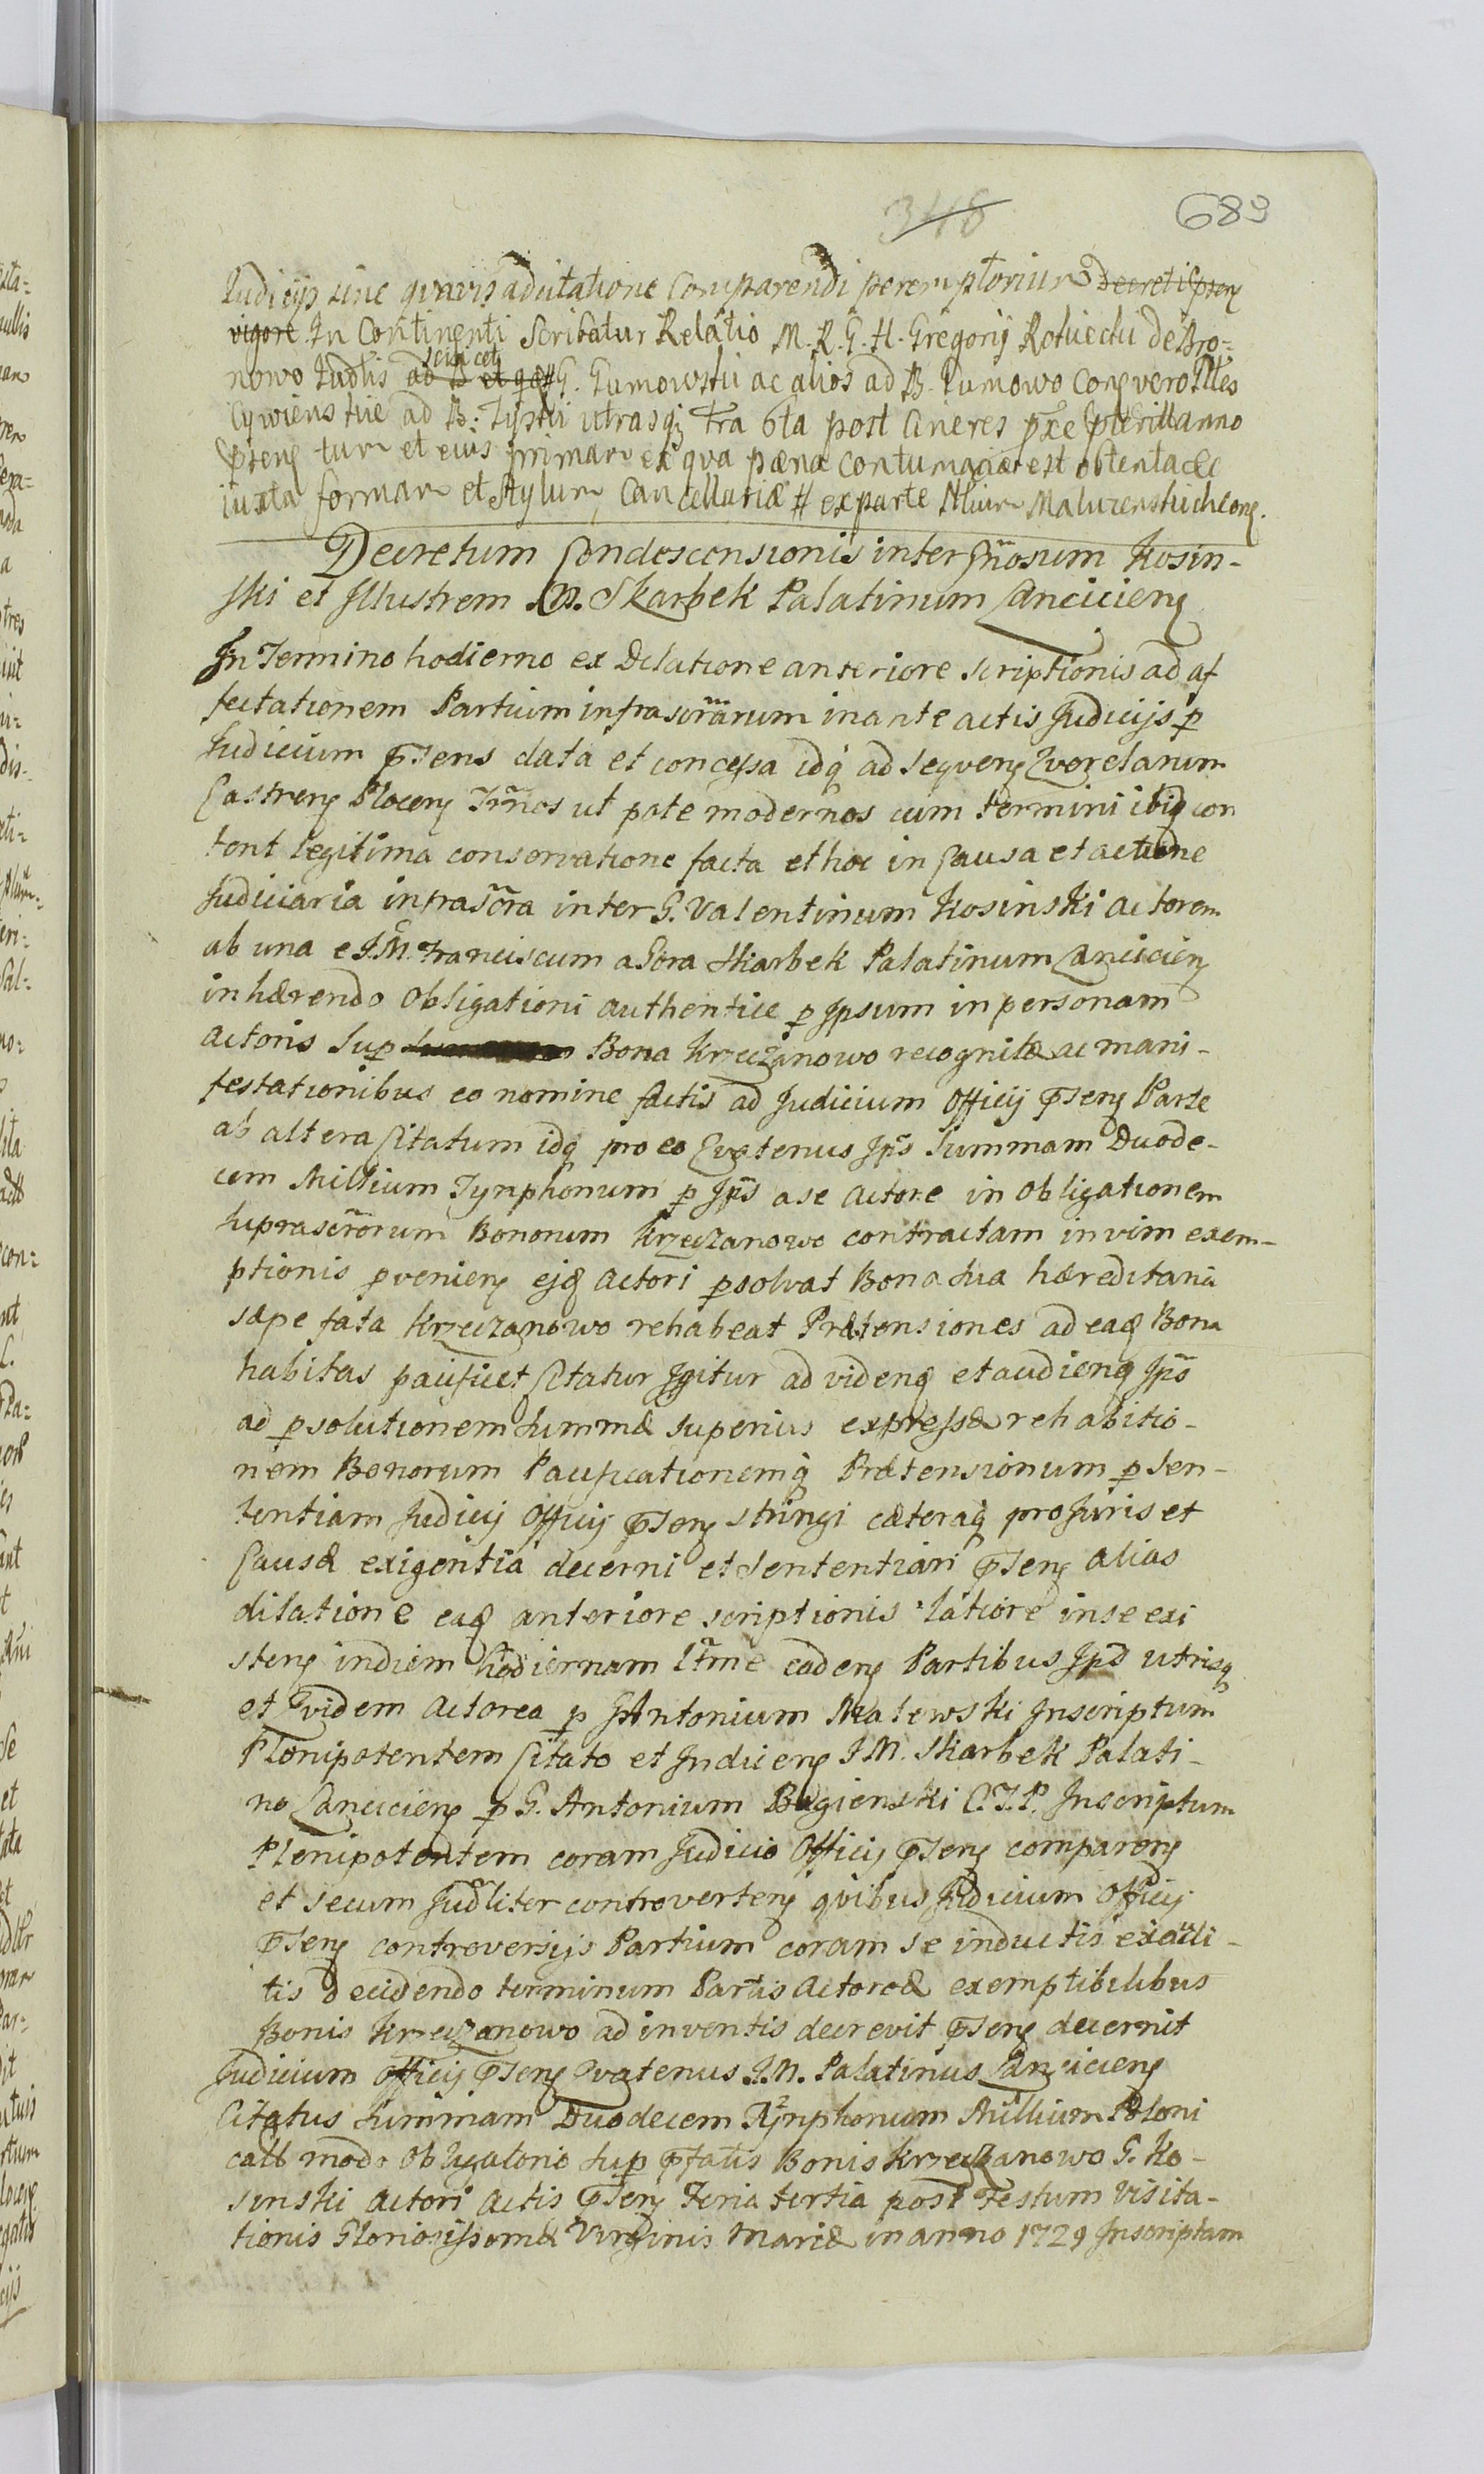 348 689
Judicijs sine quavis adcitatione Comparendi peremptorium Decreti Pntis
vigore In Continenti Scribatur Relatio M. R. G. H. Gregorij de Bro=
nowo Judlis ad B et scilicet G. Gumowski ac alios ad B. Gumowo vero
ad B: utrasq fra 6ta post Cineres anno
tum et eius primam ex qva pæna contumaciæ est obtenta &c
iuxta formam et Stylum Cancellariæ # ex parte
Decretum Condescensionis inter Gnosum Kosin-
ski et Illustrem M. Skarbek Palatinum Lancicieng
In Termino hodierno ex Dilatione anteriore scriptionis ad af
fectationem Partium infrascrarum in ante actis Judicijs p
Judicium Psens data et concessa idq ad seqveng Qverelarum
Castreng Ploceng Trnos ut pote modernos cum termini ibiq con
tent legitima conservatione facta et hoc in Causa et actione
Judiciaria infrascra inter G. Valentinum Kosinski actorem
ab una e I.M. Franciscum a Gora Skarbek Palatinum Lancicieng
inhærendo Obligationi authentice p Ipsum in personam
actoris Sup Bona Krzeczanowo recognitæ ac mani-
festationibus eo nomine factis ad Judicium Officij Pseng Parte
ab altera Citatum idq pro eo Qvatenus Ips Summam Duode-
cem Millium Tynphonum p Ips a se actore in obligationem
suprascrorum Bonorum Krzeczanowo contractam in vim exem-
ptionis pvenieng ejq actori psolvat Bona sua hæreditaria
sæpe fata Krzeczanowo rehabeat Prætensiones ad eaq Bona
habitas pacificet Citatur Igitur ad videnq et audienq Ips
ad psolutionem summæ superius expressæ rehabitio-
nem Bonorum Pacificationemq Prætensionum p Sen-
tentiam Judicij Officij Pseng stringi cæteraq pro Juris et
Causæ exigentia decerni et sententiari Pseng alias
dilatione eaq anteriore scriptionis latiore in se exi
steng in diem hodiernam ltme cadeng Partibus Ips utrisq
et Qvidem Actorea p G Antonium Malewski Inscriptum
Plenipotentem Citato et Indiceng I M. Skarbek Palati-
no Lancicieng p G. Antonium Bagienski C. T. P. Inscriptum
Plenipotentem coram Judicio Officij Pseng compareng
et secum Judliter controverteng qvibus Judicium Officij
Pseng controversijs Partium coram se inductis exaudi-
tis decidendo terminum Partis Actoreæ exemptibilibus
Bonis Krzeczanowo ad inventis decrevit Pseng decernit
Judicium Officij Pseng Qvatenus I.M. Palatinus Lancicieng
Citatus Summam Duodecem Tynphonum Millium Poloni
calt modo Obligatorio sup Pfatis Bonis Krzeczanowo G. Ko-
sinski Actori Actis Pseng Feria tertia post Festum Visita-
tionis Gloriosissimæ Virginis Mariæ in anno 1729 Inscriptam